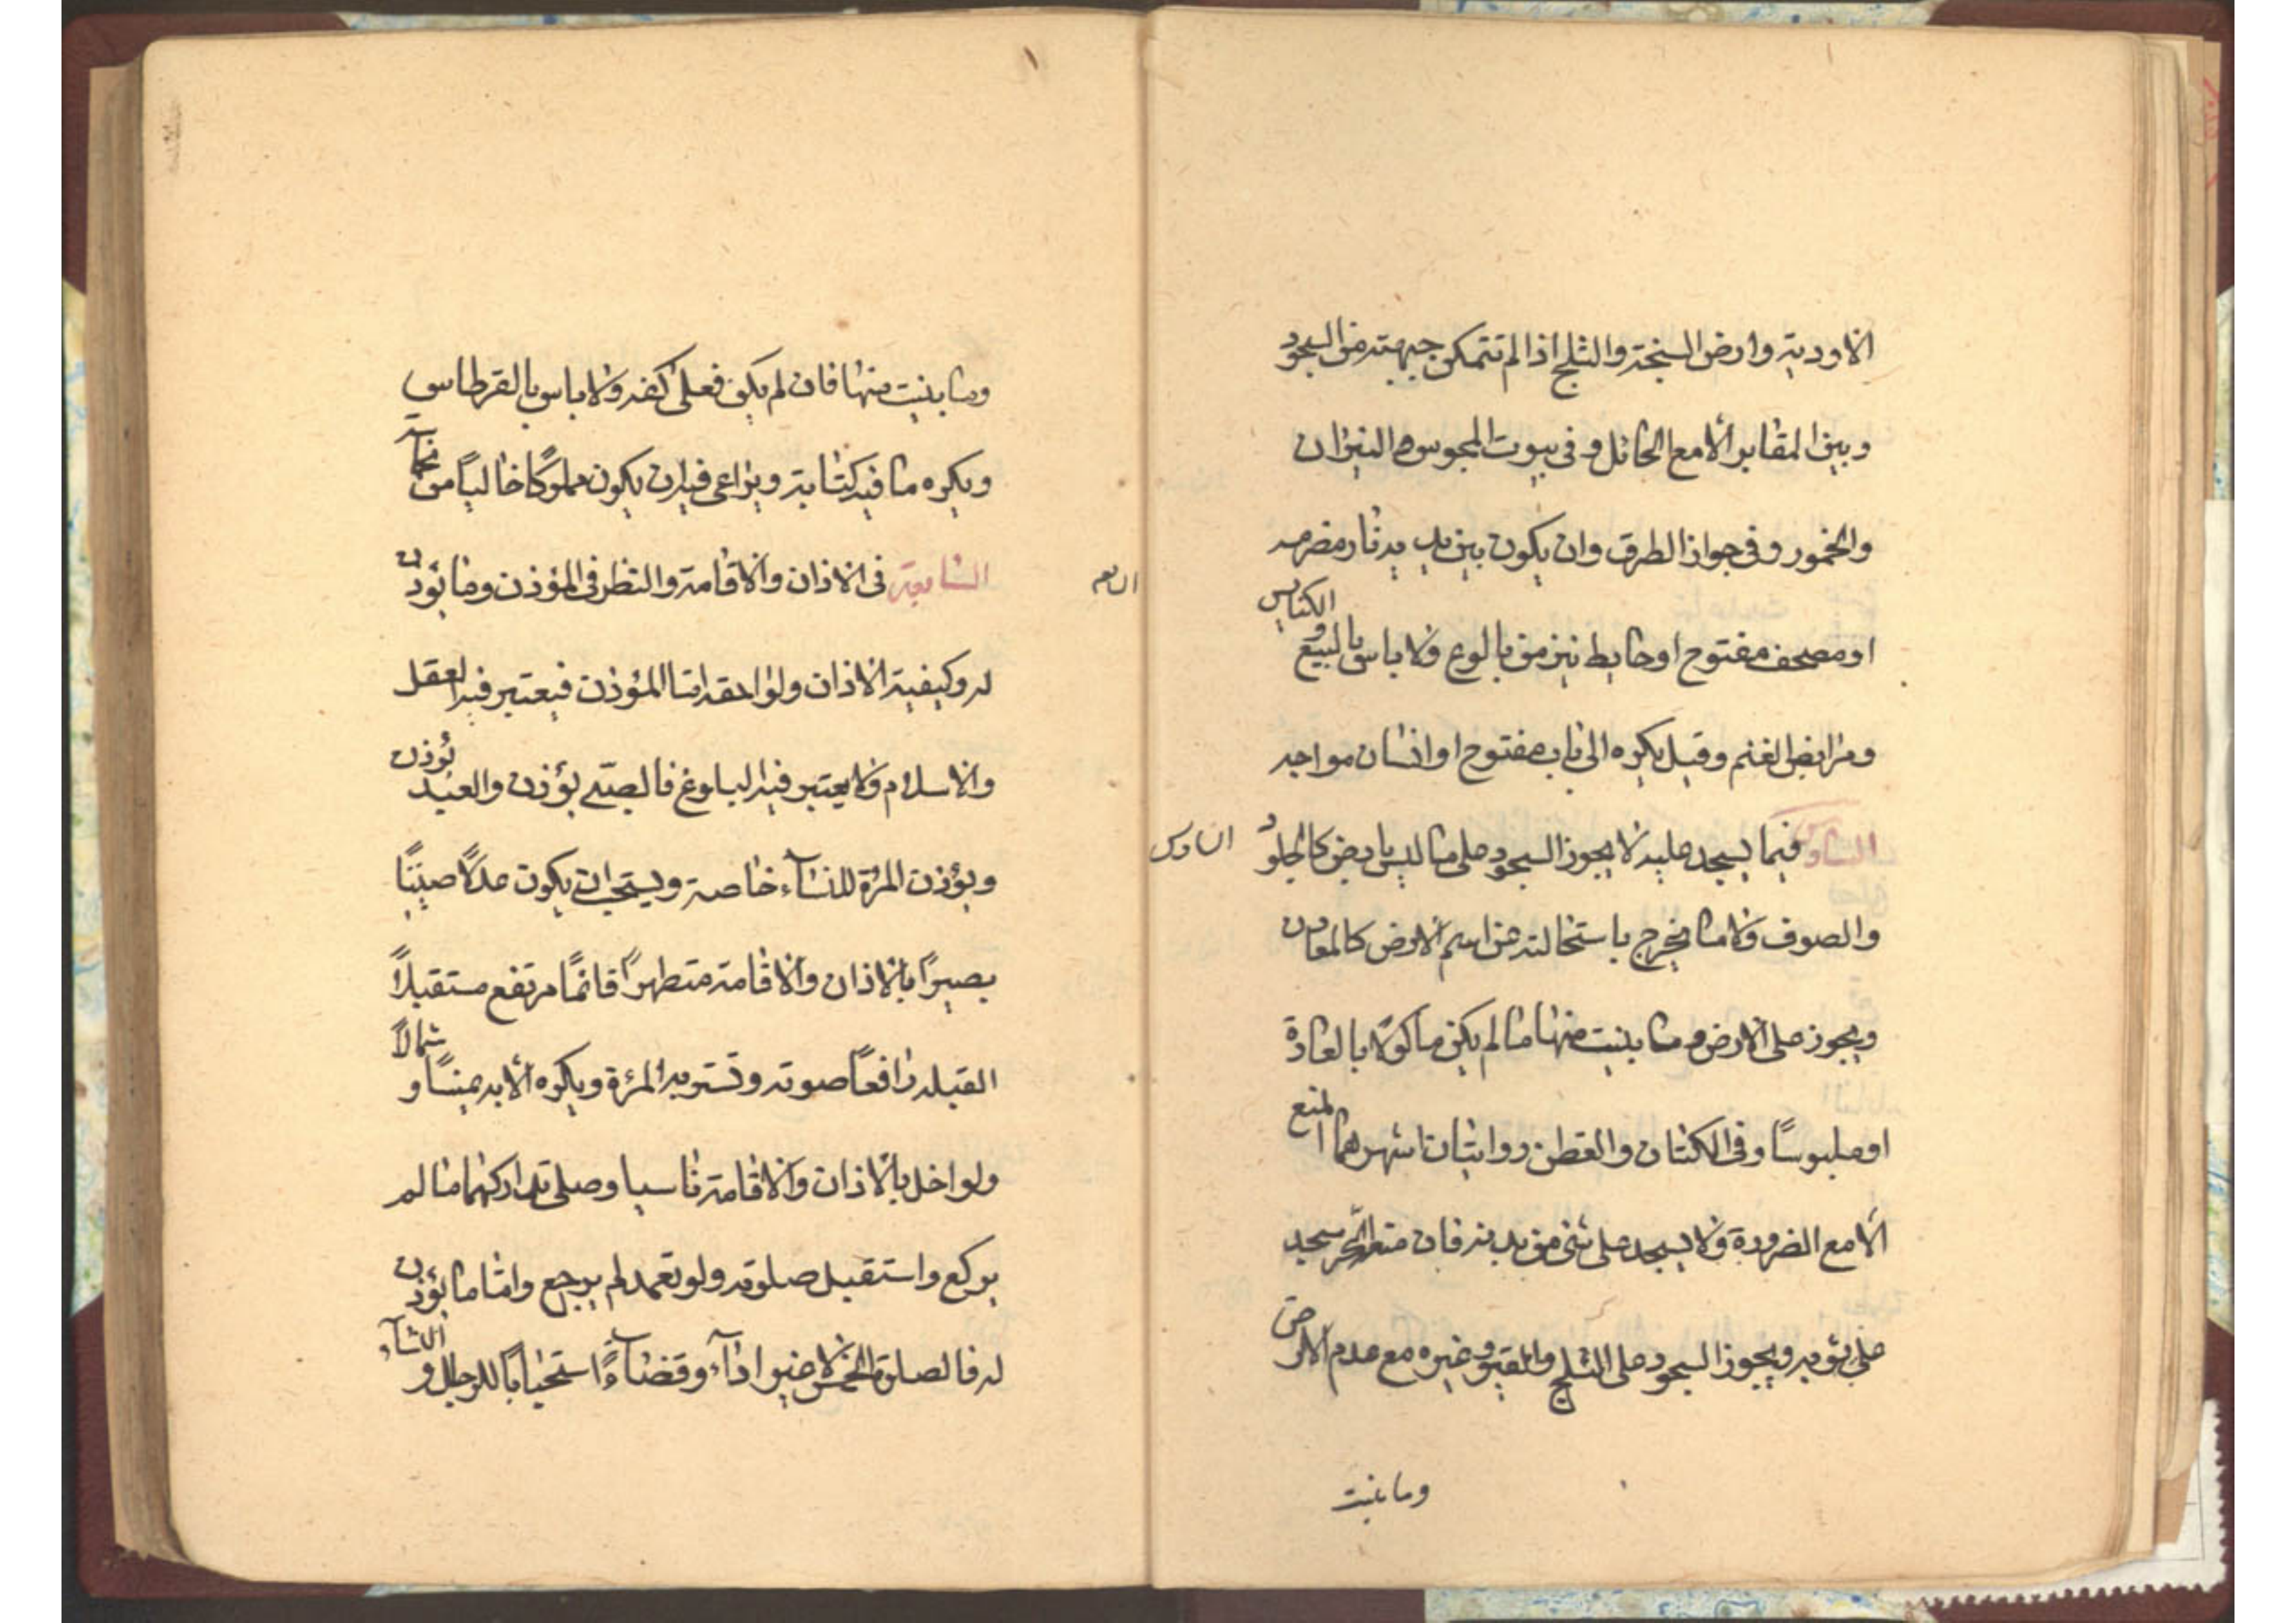 الاودية وارض السبخة والثلج اذا لم تتمكن جبهته من السجود
وبين المقابر الا مع الحائل وفى بيوت المجوس والنيران
والخمور وفى جواد الطرق وان يكون بين يديه نار مضرمه
او مصحف مفتوح او حايط ينز من بالوعه ولا باس بالبيع و الكنايس
ومرابض الغنم وقيل يكره الى باب مفتوح او انسان مواجه
السادس فيما يسجد عليه لا يجوز السجود على ما ليس بارض كالجلود
السادس
والصوف ولا ما يخرج باستحالته عن اسم الارض كالمعادن
ويجوز على الارض و ما ينبت منها ما لم يكن ماكولا بالعادة
او ملبوسًا وفى الكتان والقطن روايتان اشهرهما المنع
الا مع الضرورة ولا يسجد على شئ من بدنه فان منعه الحر سجد
على ثوبه ويجوز السجود على الثلج والقير وغيره مع عدم الارض
وما ينبت
وما ينبت منها فان لم يكن فعلى كفه ولا باس بالقرطاس
ويكره ما فيه كتابة ويراعى فيه ان يكون مملوكًا خاليًا من نجاسة
السابعة فى الاذان والاقامة والنظر فى المؤذن وما يؤذن
له وكيفية الاذان ولواحقه اما المؤذن فيعتبر فيه العقل
والاسلام ولا يعتبر فيه البلوغ فالصبى يؤذن والعبد يؤذن
ويؤذن المرئة للنسآء خاصة ويستحب ان يكون عدلًا صيتًا
بصيرًا بالاذان والاقامة متطهرًا قائمًا مرتفع مستقبلًا
القبله رافعًا صوته وتستر به المرئة ويكره الا به يمينًا و شمالًا
ولو اخل بالاذان والاقامة ناسيا وصلى تداركهما ما لم
يركع واستقبل صلوته ولو تعمد لم يرجع واما ما يؤذن
له فالصلوة الخمس لا غير ادآء وقضآءً استحبابًا للرجال و النسآء